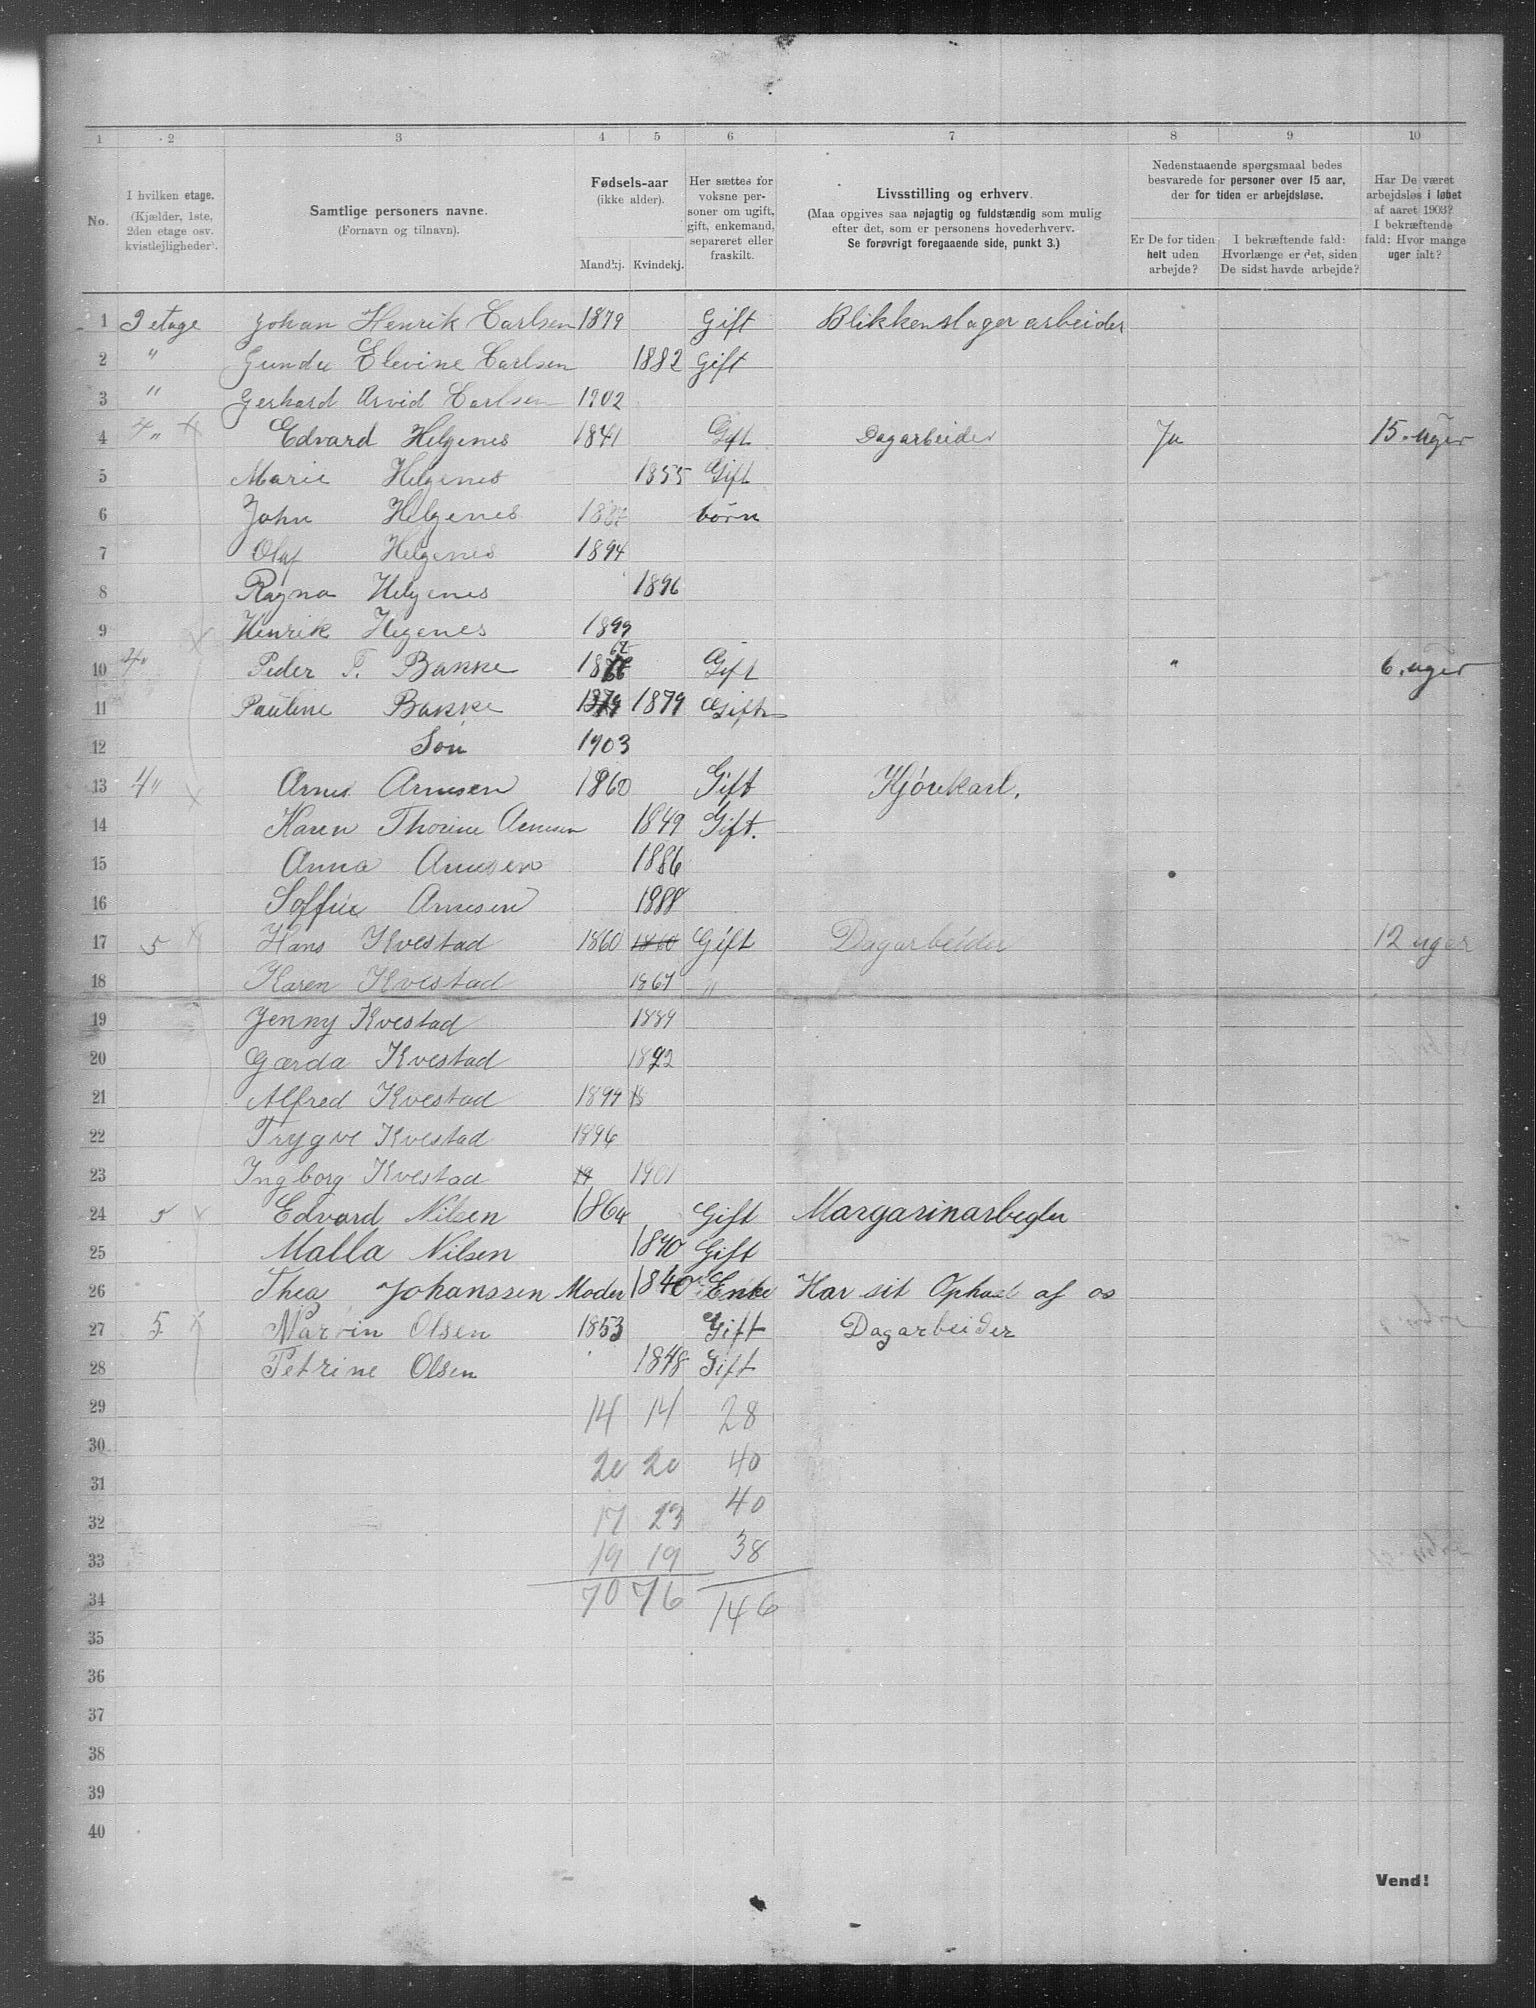 1 2 3 4 5 6 7 8 9 10
No.
I hvilken etage.
(Kjælder, 1ste,
2den etage osv.
kvistlejligheder).
Samtlige personers navne.
(Fornavn og tilnavn).
Fødsels-aar
(ikke alder).
Mandkj. Kvindekj.
Her sættes for
voksne per-
soner om ugift,
gift, enkemand,
separeret eller
fraskilt.
Livsstilling og erhverv.
(Maa opgives saa nøjagtig og fuldstændig som mulig
efter det, som er personens hovederhverv.
Se forøvrigt foregaaende side, punkt 3.)
Nedenstaaende spørgsmaal bedes
besvarede for personer over 15 aar,
der for tiden er arbejdsløse.
Er De for tiden
helt uden
arbejde?
I bekræftende fald:
Hvorlænge er det, siden
De sidst havde arbejde?
Har De været
arbejdsløs i løbet
af aaret 1903?
I bekræftende
fald: Hvor mange
uger ialt?
1 3 etage Johan Henrik Carlsen 1879 Gift Blikkenslager arbeider
2 " Gunda Elevine Carlsen 1882 Gift
3 " Gerhard Arvid Carlsen 1902
4 4 " Edvard Helgenes 1841 Gift Dagarbeider Ja 15. uger
5 Marie Helgenes 1855 Gift
6 John Helgenes 1887 børn
7 Olaf Helgenes 1894
8 Ragna Helgenes 1896
9 Henrik Hegenes 1899
10 4 " Peder T. Bakke Gift " 6. uger
11 Pauline Bakke 1879 1879 Gift
12 Son 1903
13 4 " Arne Arnesen 1860 Gift Kjørekarl.
14 Karen Thorine Arnesen 1849 Gift.
15 Anna Arnesen 1886
16 Soffie Arnesen 1888
17 5 Hans Kvestad 1860 1860 Gift Dagarbeider 12 uger
18 Karen Kvestad 1867 "
19 Jenny Kvestad 1889
20 Gærda Kvestad 1892
21 Alfred Kvestad 1899 18
22 Trygve Kvestad 1896
23 Ingborg Kvestad 19 1901
24 5 Edvard Nilsen 1864 Gift Margarinarbegder
25 Malla Nilsen 1870 Gift
26 Thea Johanssen Moder 1840 Enke Har sit Ophold af os
27 5 Marvin Olsen 1853 Gift Dagarbeider
28 Petrine Olsen 1848 Gift
29 14 14 28
30 20 20 40
31 40
32 17 23
33 19 19 38
34 70 76 146
35
36
37
38
39
40
Vend!